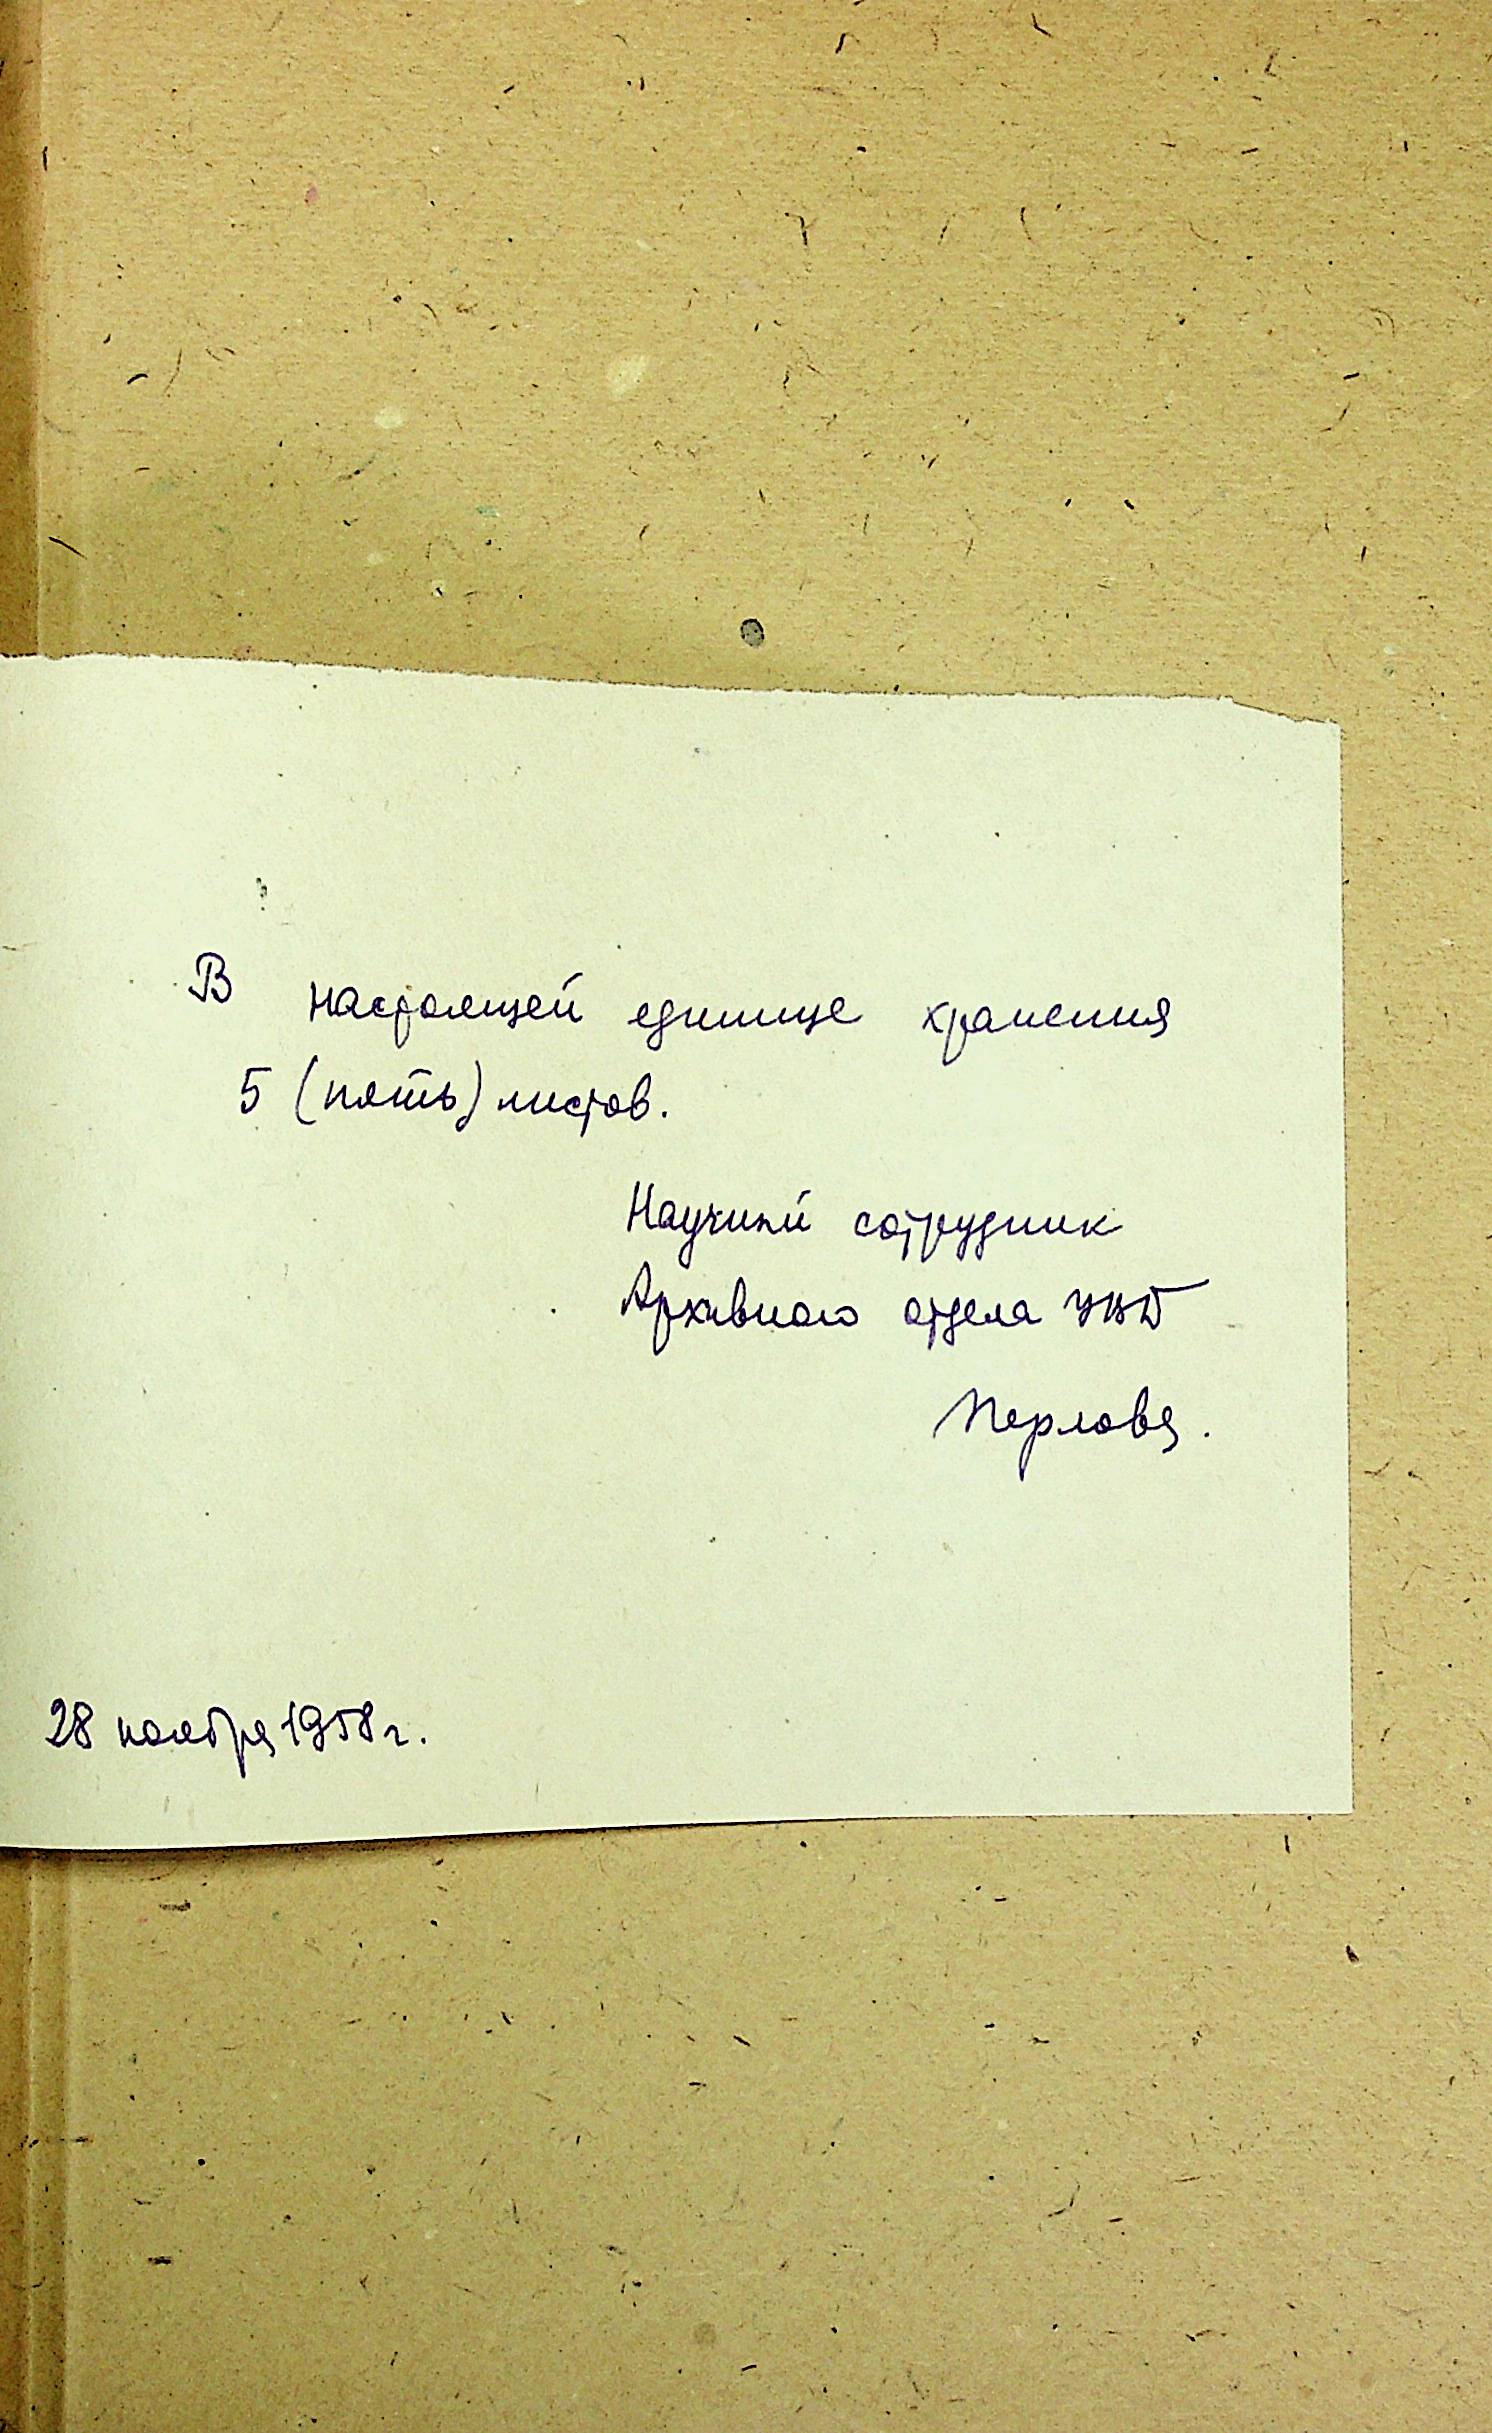 В настоящей единице хранения
5 (пять) листов.
Научный сотрудник
Архивного отдела УВД
Перлова.
28 ноября 1958 г.